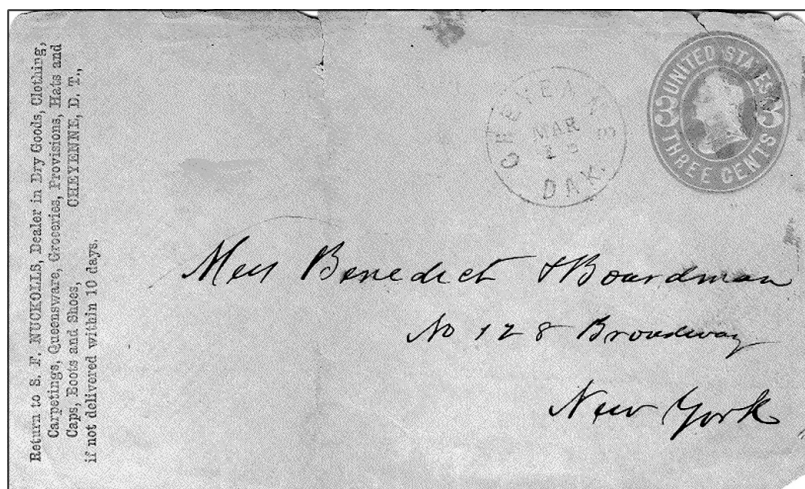 Return to S. F. NUCKOLLS, Dealer in Dry Goods, Clothing,
Carpetings, Queensware, Groceries, Provisions, Hats and
Caps, Boots and Shoes, CHEYENNE, D. T.,
if not delivered within 10 days.
CHEYENNE
MAR
DAK.
UNITED STATES
3 3
THREE CENTS
Mess Benedict & Boardman
No 128 Broadway
New York